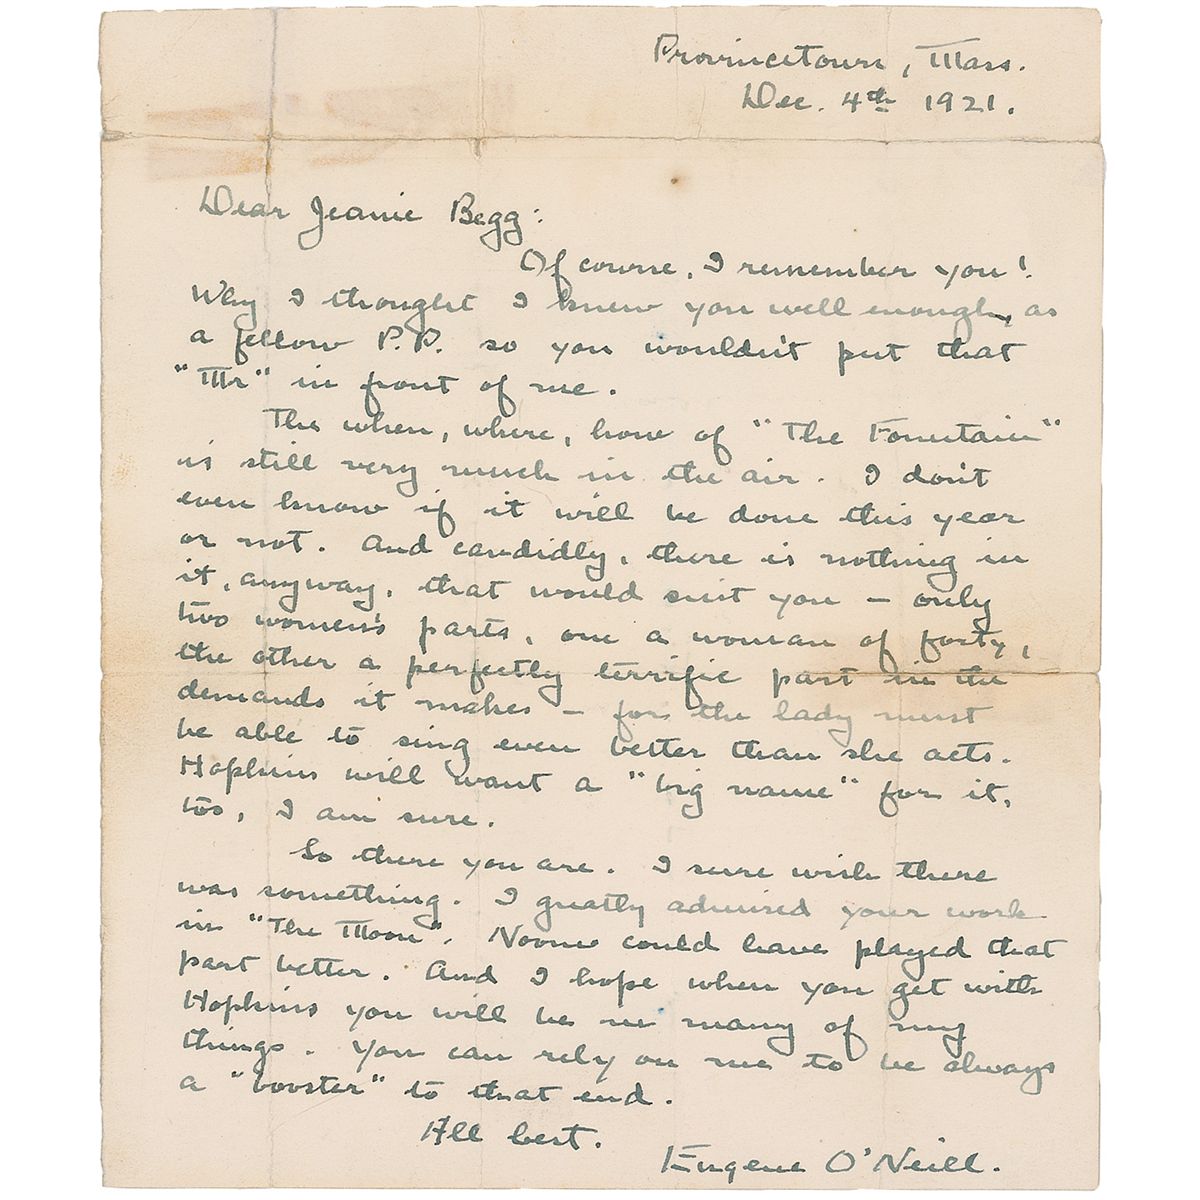 Provincetown, Mass.
Dec. 4th 1921.
Dear Jeanie Begg:
Of course, I remember you!
Why I thought I knew you well enough, as
a fellow P.P. so you wouldn't put that
"Mr" in front of me.
The when, where, how of "The Fountain"
is still very much in the air. I don't
even know if it will be done this year
or not. And candidly, there is nothing in
it, anyway, that would suit you – only
two women's parts, one a woman of forty,
the other a perfectly terrific part in the
demands it makes – for the lady must
be able to sing even better than she acts.
Hopkins will want a "big name" for it,
too, I am sure.
So there you are. I sure wish there
was something. I greatly admired your work
in "The Moon". Noone could have played that
part better. And I hope when you get with
Hopkins you will be in many of my
things. You can rely on me to be always
a "booster" to that end.
All best.
Eugene O'Neill.